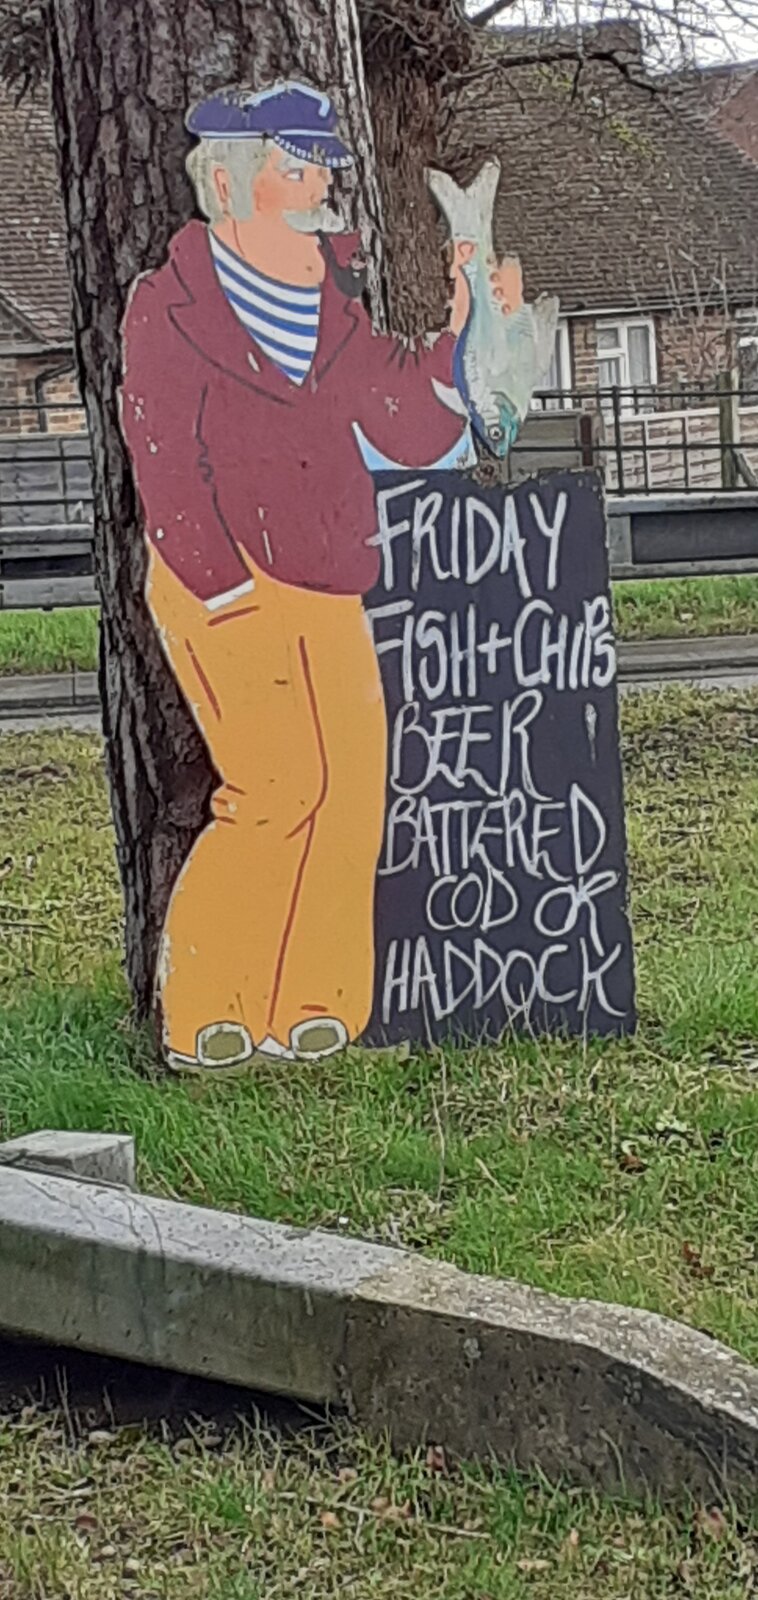 FRIDAY
FISH+CHIPS
BEER
BATTERED
COD OR
HADDOCK